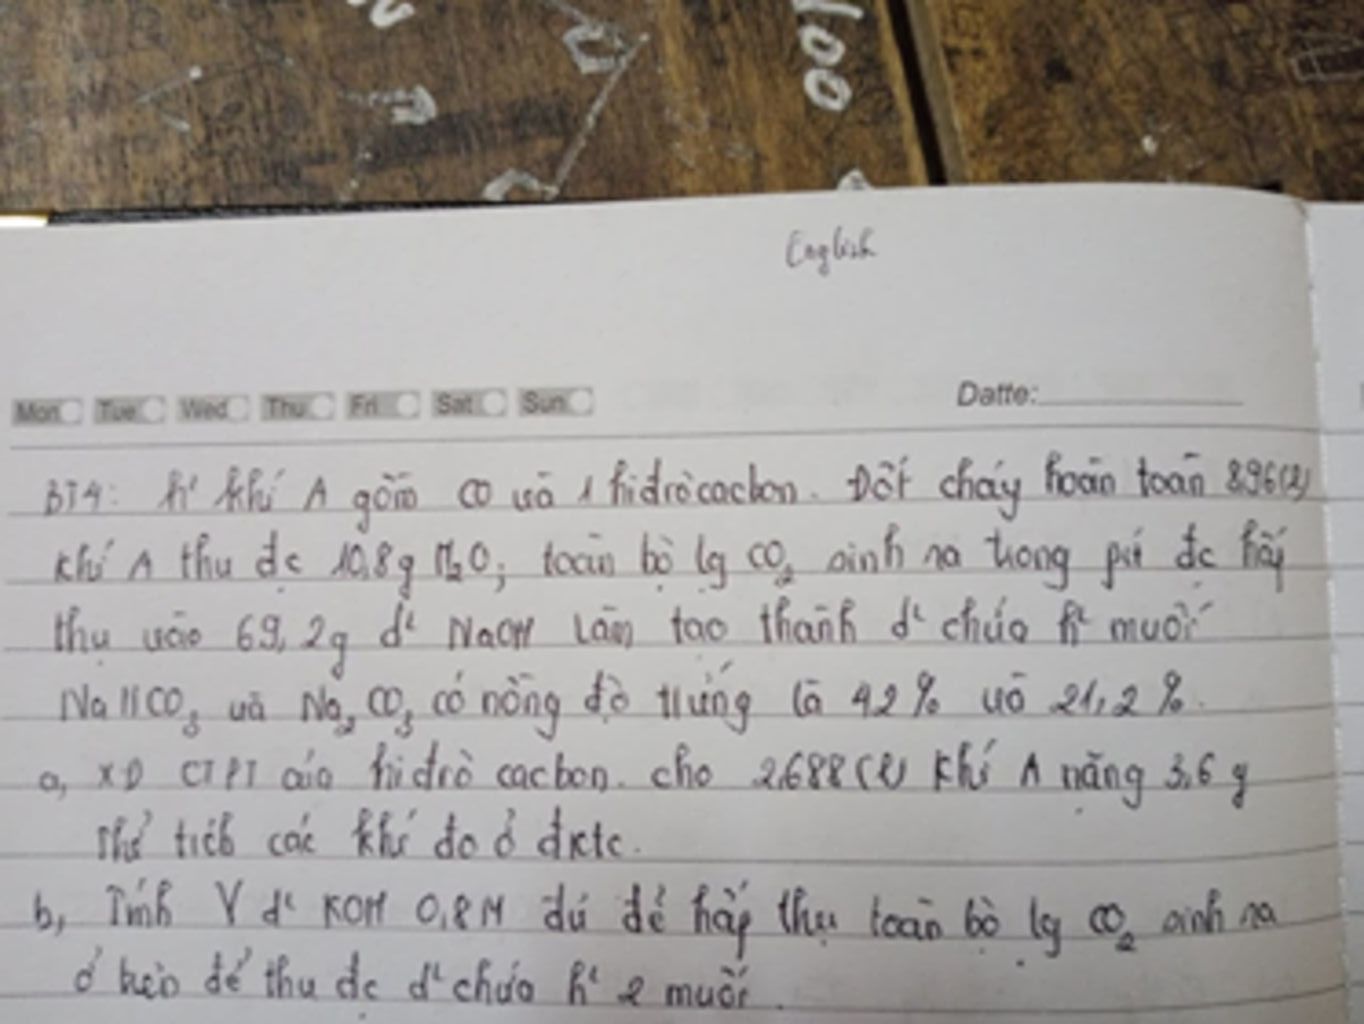 100
English
Mon Tue Wed Thu Fri Sat Sun Datte:
BT4: h² khí A gồm CO và 1 hiđrôcacbon. Đốt cháy hoàn toàn 8,96(l)
khí A thu đc 10,8g H₂O, toàn bộ lg CO₂ sinh ra trong pứ đc hấp
thụ vào 69,2g d² NaOH làm tạo thành d² chứa h² muối
NaHCO₃ và Na₂CO₃ có nồng độ tứng là 4,2% và 21,2%.
a, XĐ CTPT của hiđrô cacbon. cho 2,688(l) khí A nặng 3,6g
Thể tích các khí đo ở đktc.
b, Tính V d² KOH 0,8M đủ để hấp thụ toàn bộ lg CO₂ sinh ra
ở trên để thu đc d² chứa h² 2 muối.